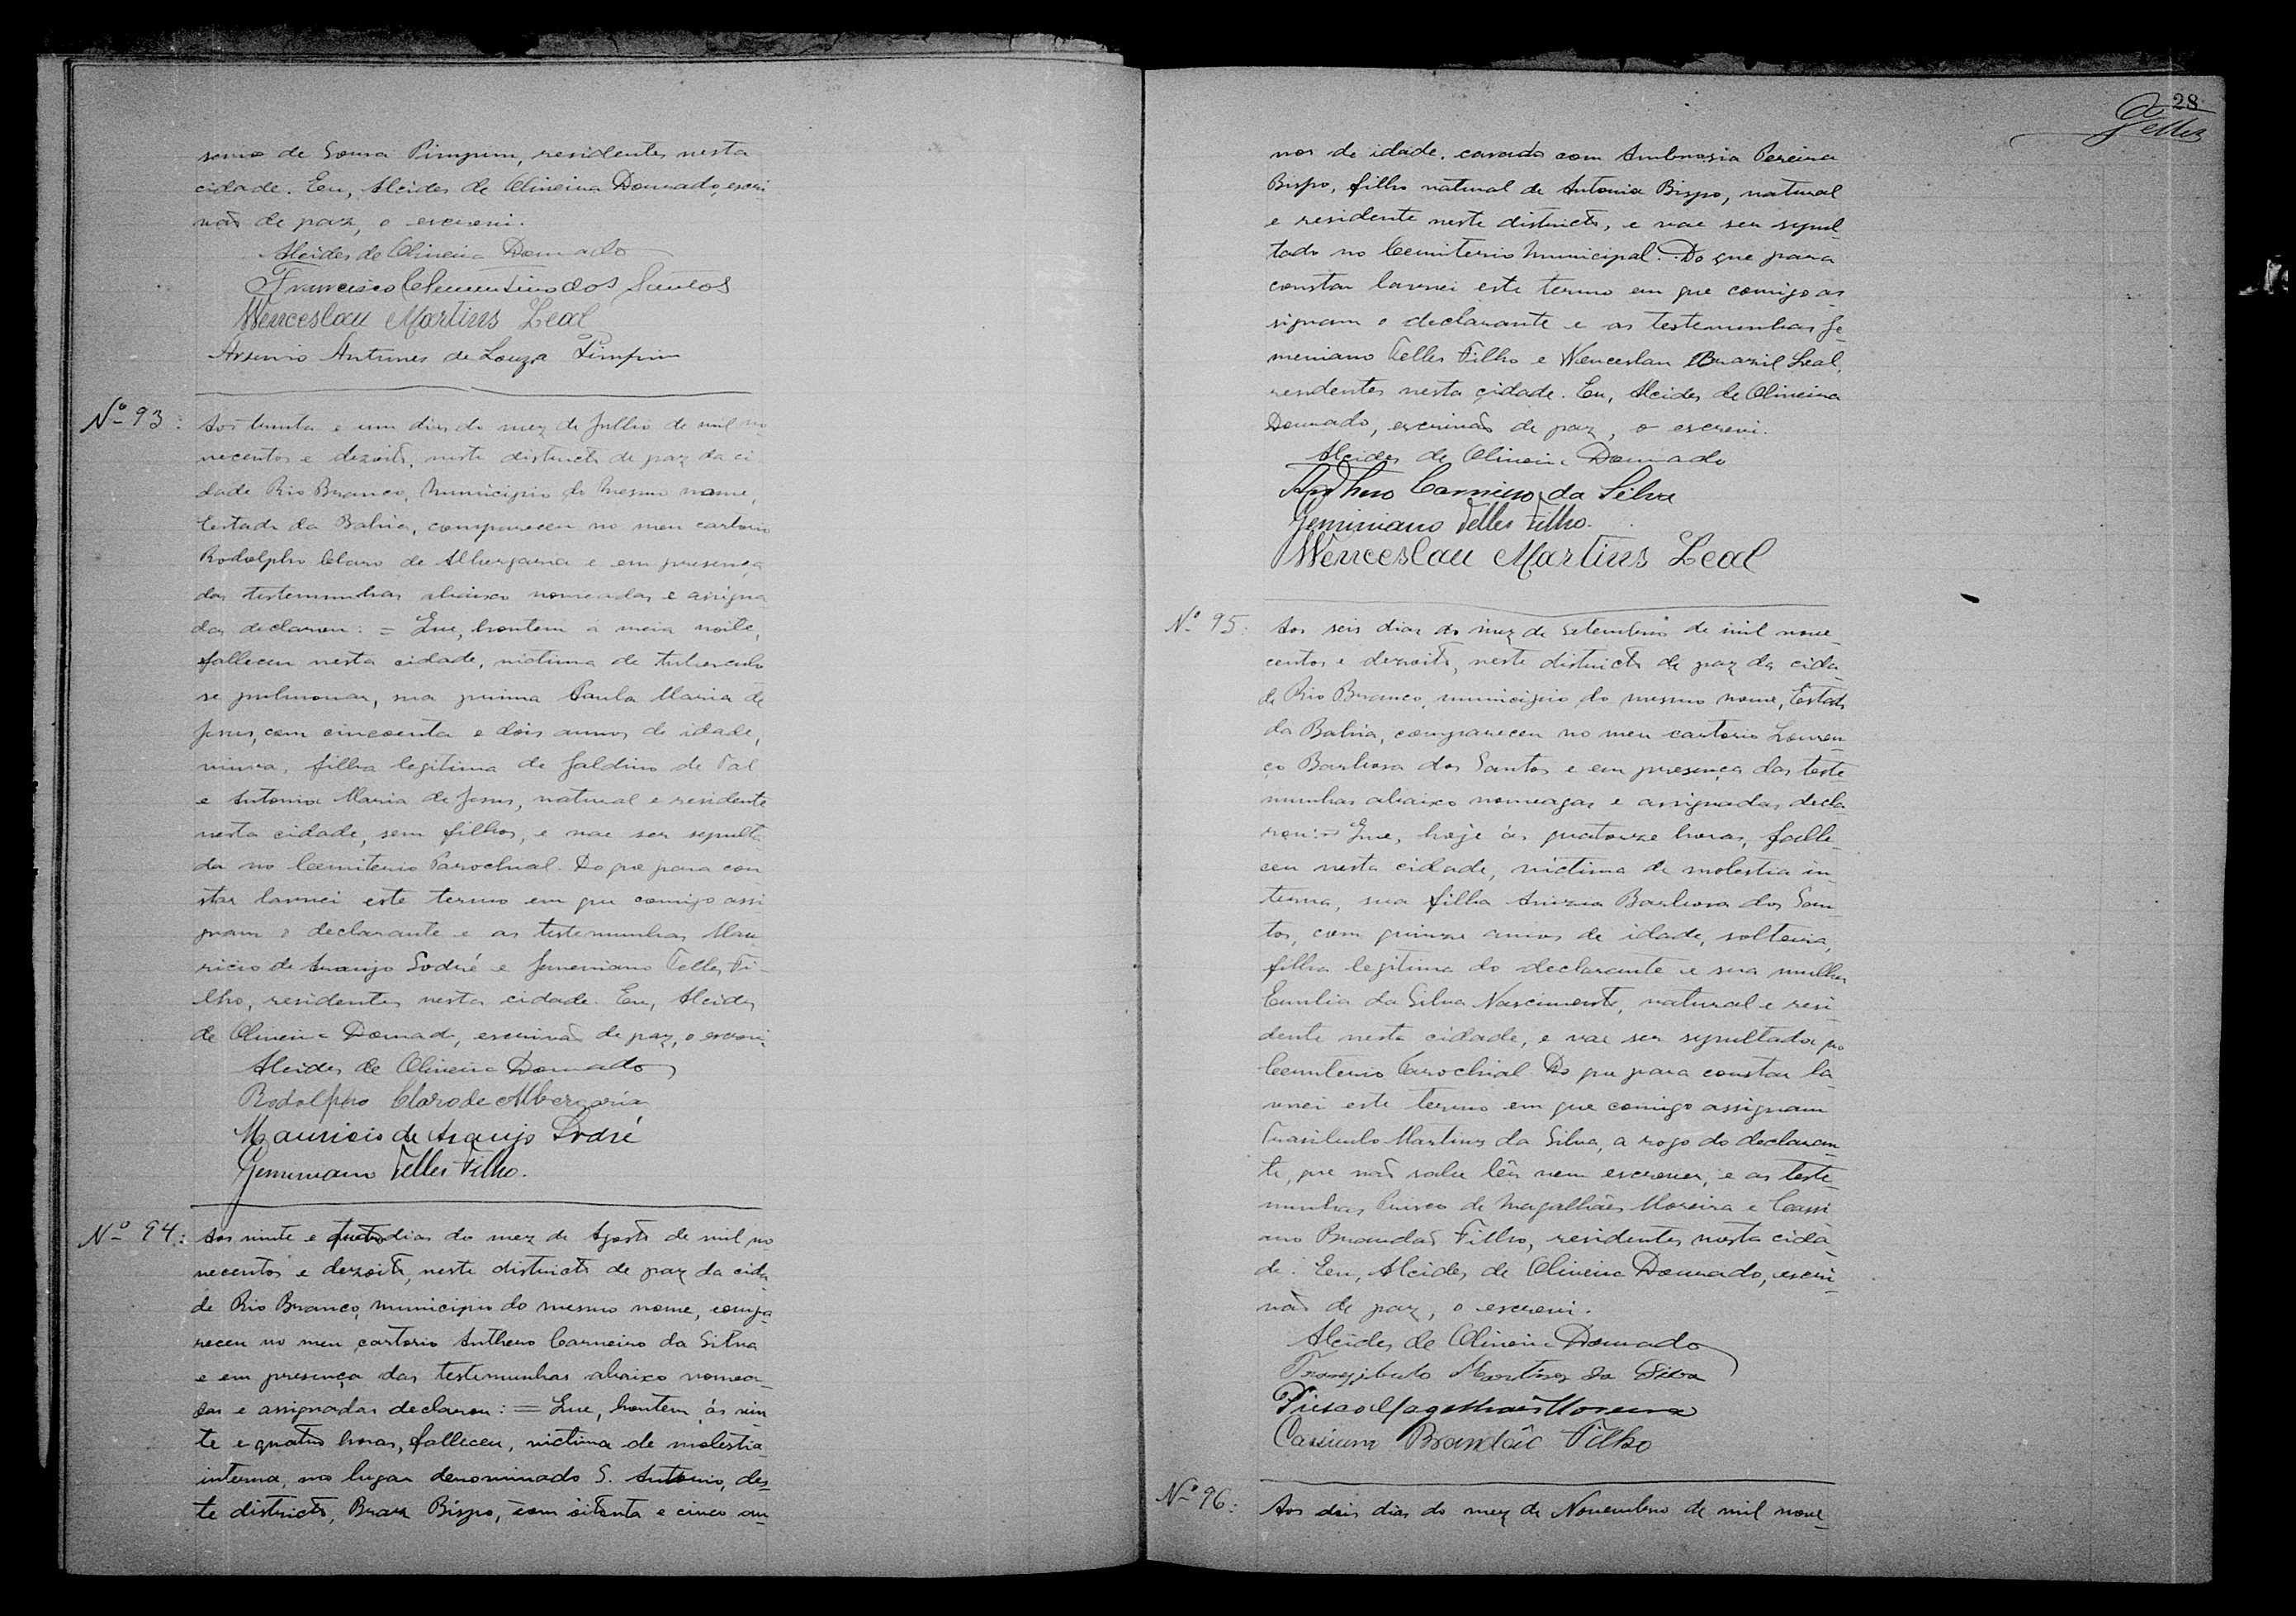 senio de Sousa Pimpim, residentes nesta
cidade. Eu, Alcides de Oliveira Dourado, escri
vão de paz, o escrevi.
Alcides de Oliveira Dourado
Francisco Clementino dos Santos
Wenceslau Martins Leal
Arsenio Antunes de Souza Pimpim
Nº 93:
Aos trinta e um dias do mez de Julho de mil no
vecentos e dezoito, neste districto de paz da ci
dade Rio Branco, Municipio do mesmo nome,
Estado da Bahia, compareceu no meu cartorio
Rodolpho Claro de Albergaria e em presença
das testemunhas abaixo nomeadas e assigna
das declarou: = Que, hontem á meia noite,
falleceu nesta cidade, victima de tuberculo
se pulmonar, sua prima Paula Maria de
Jesus, com cincoenta e dois annos de idade,
viuva, filha legitima de Galdino de Tal
e Antonia Maria de Jesus, natural e residente
nesta cidade, sem filhos, e vae ser sepulta
da no Cemiterio Parochial. Do que para con
star lavrei este termo em que comigo assi
gnam o declarante e as testemunhas Mau
ricio de Araujo Sodré e Gemeniano Telles Fi-
lho, residentes nesta cidade. Eu, Alcides
de Oliveira Dourado, escrivão de paz, o escrevi.
Alcides de Oliveira Dourado
Rodolpho Claro de Albergaria
Mauricio de Araujo Sodré
Geminiano Telles Filho.
Nº 94:
Aos vinte e quatro dias do mez de Agosto de mil no
vecentos e dezoito, neste districto de paz da cida
de Rio Branco, municipio do mesmo nome, compa-
receu no meu cartorio Anthero Carneiro da Silva
e em presença das testemunhas abaixo nomea-
das e assignadas declarou: = Que, hontem, ás vin
te e quatro horas, falleceu, victima de molestia
interna, no lugar denominado S. Antonio, des-
te districto, Braz Bispo, com oitenta e cinco an-
28
Telles
nos de idade, casado com Ambrosia Pereira
Bispo, filho natural de Antonia Bispo, natural
e residente neste districto, e vae ser sepul-
tado no Cemiterio Municipal. Do que para
constar lavrei este termo em que comigo as
signam o declarante e as testemunhas Ge
meniano Telles Filho e Wenceslau Brazil Leal,
residentes nesta cidade. Eu, Alcides de Oliveira
Dourado, escrivão de paz, o escrevi.
Alcides de Oliveira Dourado
Anthero Carneiro da Silva
Geminiano Telles Filho.
Wenceslau Martins Leal
Nº 95:
Aos seis dias do mez de Setembro de mil nove-
centos e dezoito, neste districto de paz da cida-
de Rio Branco, municipio do mesmo nome, Estado
da Bahia, compareceu no meu cartorio Louren-
ço Barbosa dos Santos e em presença das teste-
munhas abaixo nomeagas e assignadas decla-
rou: = Que, hoje ás quatorze horas, falle-
ceu nesta cidade, victima de molestia in-
terna, sua filha Anizia Barbosa dos San-
tos, com quinze annos de idade, solteira,
filha legitima do declarante e sua mulher
Emilia da Silva Nascimento, natural e resi-
dente nesta cidade, e vae ser sepultada no
Cemiterio Parochial. Do que para constar la-
vrei este termo em que comigo assignam
Trasibulo Martins da Silva, a rogo do declaran-
te, que não sabe lêr nem escrever, e as teste-
munhas Prisco de Magalhães Moreira e Cassi
ano Brandão Filho, residentes nesta cida-
de. Eu, Alcides de Oliveira Dourado, escri-
vão de paz, o escrevi.
Alcides de Oliveira Dourado
Martins da Silva
Prisco Magalhães Moreira
Cassiano Brandão Filho
Nº 96:
Aos dois dias do mez de Novembro de mil nove-